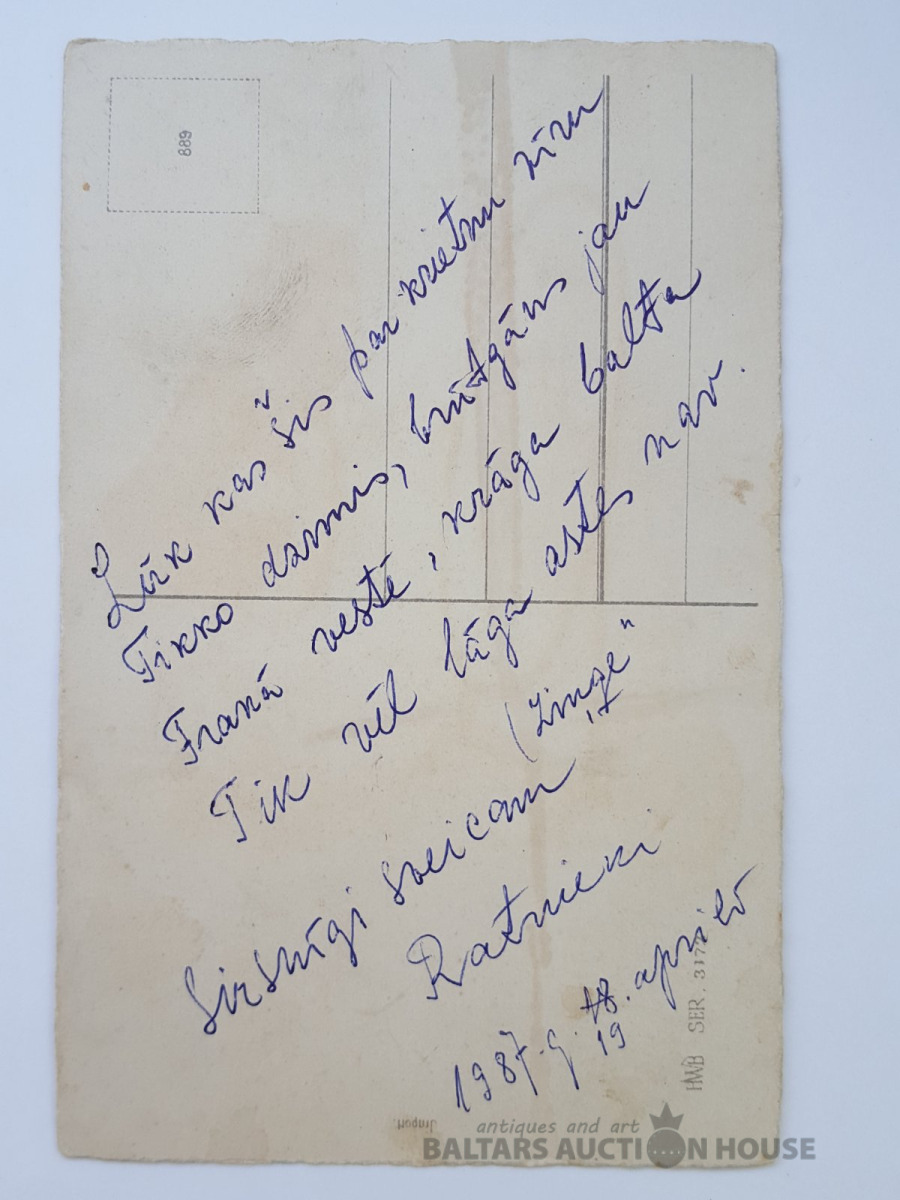 889
Lūk kas šis par krietnu zīru
Tikko dzimis, bruņgāns jau
Frakā vestē, krāga balta
Tik vēl lāga astes nav.
(Zinģe"
Sirsnīgi sveicam
Ratnieki
1987.g. 18. aprīlī
19
HWB SER. 317
Import.
antiques and art
BALTARS AUCTION HOUSE